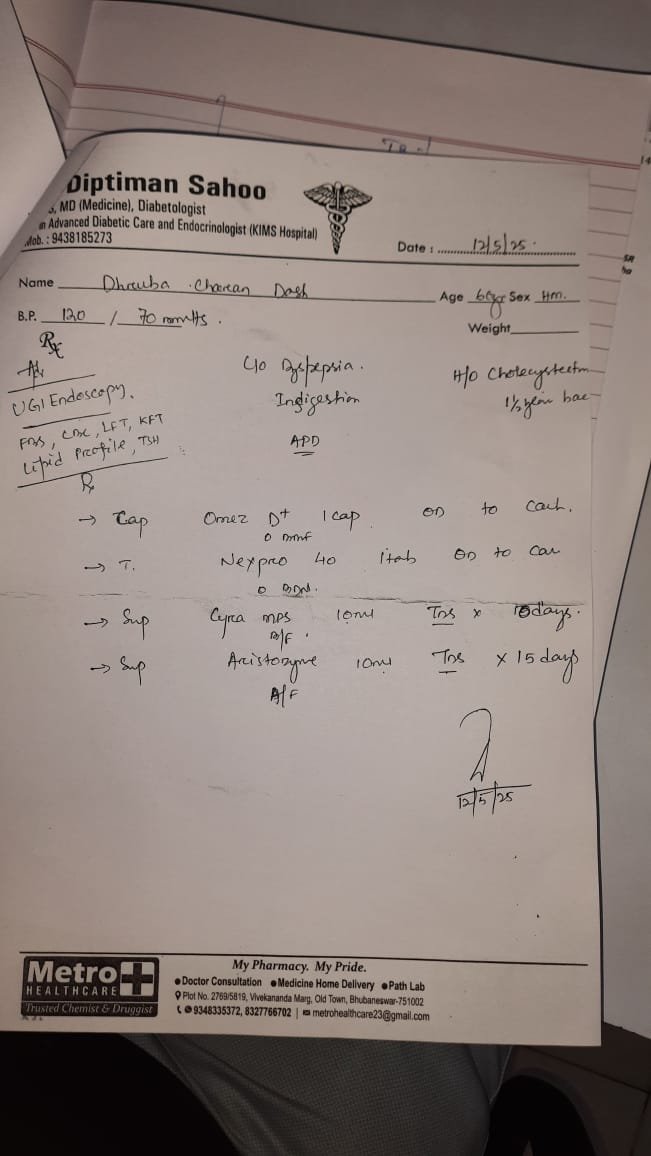 Diptiman Sahoo
MD (Medicine), Diabetologist
Advanced Diabetic Care and Endocrinologist (KIMS Hospital)
Mob. : 9438185273
Date : 12/5/25
Name Dhruba Charan Dash
Age Sex
B.P. 120 / 70 mmHg
Weight
Rx
Adv
UGI Endoscopy.
FBS, CBC, LFT, KFT
Lipid Profile, TSH
C/o Dyspepsia.
Indigestion
APD
H/O Cholecystectm
1½ year bac
Rx
→ Cap Omez D+ 1 cap OD to cont.
→ T. Nexpro 40 1 tab OD to con
→ Syp Cyra MPS 10ml TDS x 10 days.
B/F
→ Syp Aristozyme 10ml TDS x 15 days
A/F
12/5/25
Metro
HEALTHCARE
Trusted Chemist & Druggist
My Pharmacy. My Pride.
● Doctor Consultation ● Medicine Home Delivery ● Path Lab
Plot No. 2769/5819, Vivekananda Marg, Old Town, Bhubaneswar-751002
9348335372, 8327766702 | metrohealthcare23@gmail.com